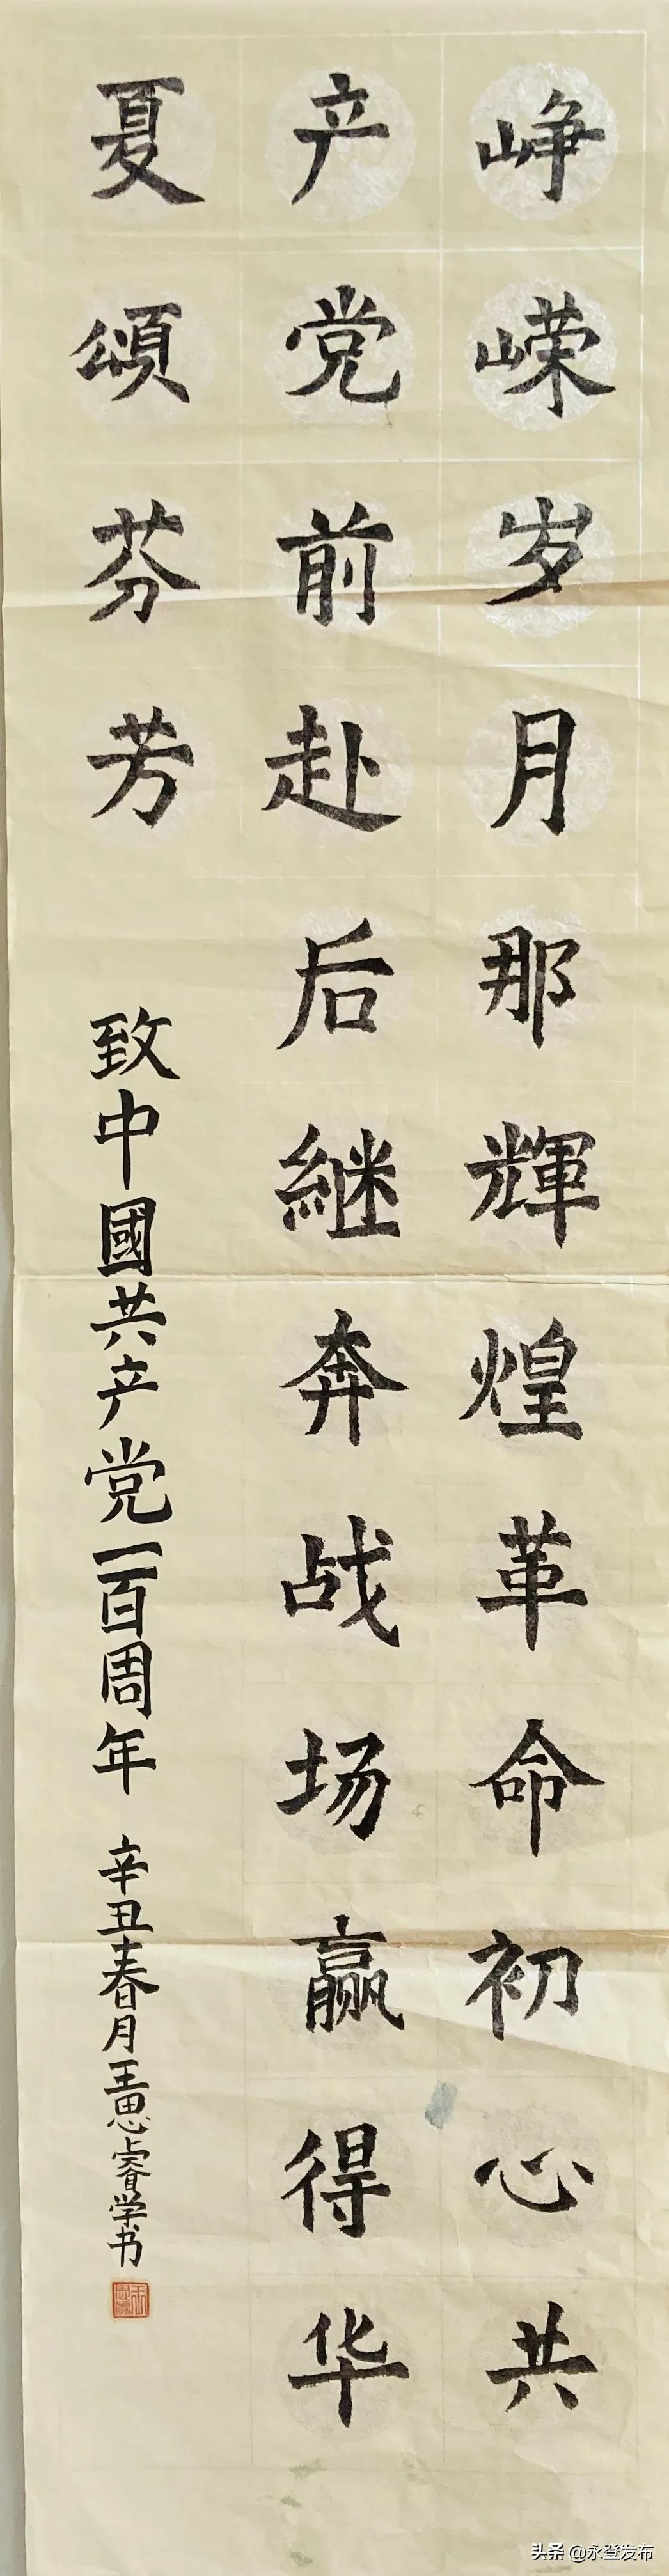 峥嵘岁月那輝煌革命初心共
产党前赴后継奔战场赢得华
夏頌芬芳
致中國共产党一百周年
辛丑春月王思睿学书
头条@永登发布